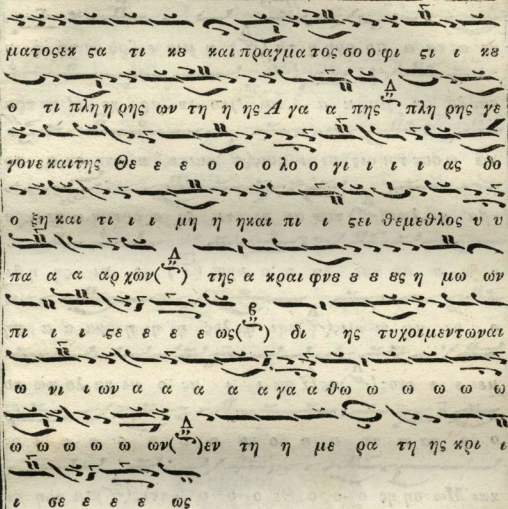 ματοςεκ ςα τι κȣ και πραγμα τος σο ο φι ςι ι κȣ
ο τι πλη η ρης ων τη η ης Α γα α πης πλη ρης γε
γονε και της Θε ε ε ο ο ο λο ο γι ι ι ι ας δο
ο ξη και τι ι ι μη η η και πι ι ςει θεμεθλος υ υ
πα α α αρ χων( ) της α κραι φνȣ ȣ ȣ ες η μω ων
πι ι ι ςε ε ε ε ως( ) δι ης τυχοιμεντωναι
ω νι ι ων α α α α α α γα α θω ω ω ω ω ω
ω ω ω ω ω ων( )εν τη η με ρα τη ης κρι ι
ι σε ε ε ε ως